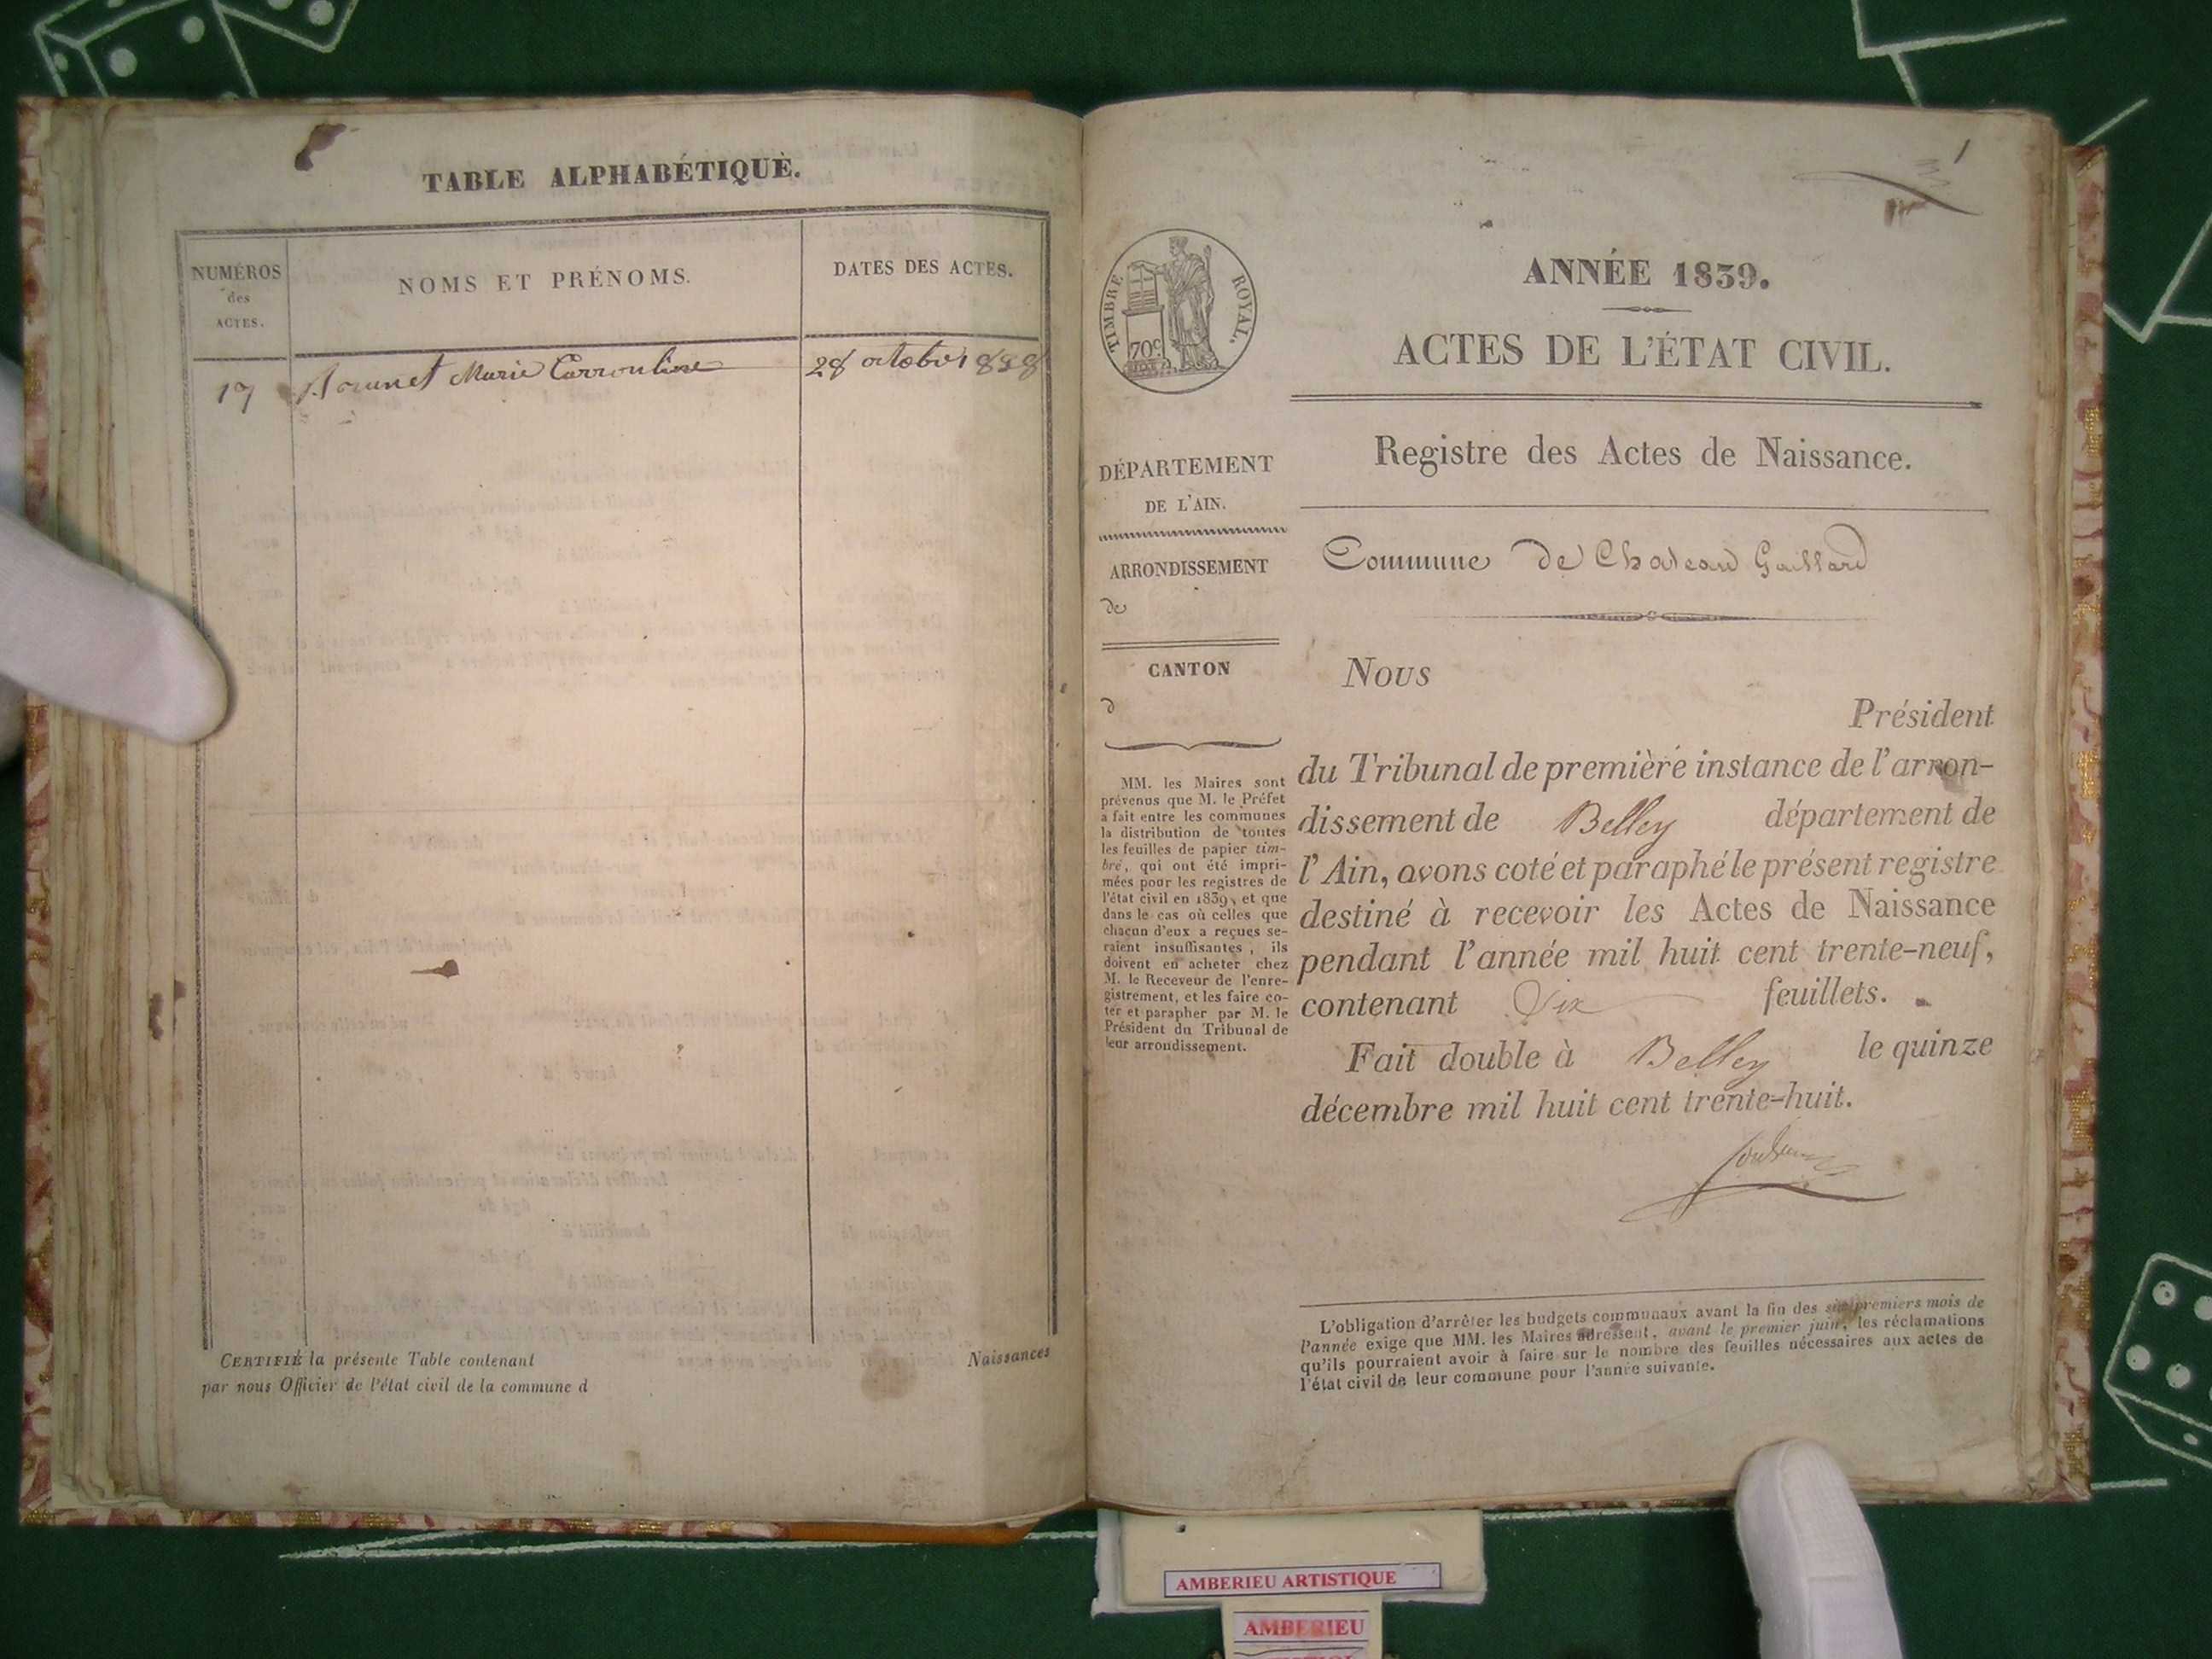 TABLE ALPHABÉTIQUE.
NUMÉROS
des
ACTES.
NOMS ET PRÉNOMS.
DATES DES ACTES.
17
Marie
28 octobr 1838
CERTIFIÉ la présente Table contenant Naissances
par nous Officier de l'état civil de la commune d
1
TIMBRE ROYAL.
70c
ANNÉE 1839.
ACTES DE L'ÉTAT CIVIL.
DÉPARTEMENT
DE L'AIN.
ARRONDISSEMENT
de
CANTON
d
MM. les Maires sont
prévenus que M. le Préfet
a fait entre les communes
la distribution de toutes
les feuilles de papier tim-
bré, qui ont été impri-
mées pour les registres de
l'état civil en 1839, et que
dans le cas où celles que
chacun d'eux a reçues se-
raient insuffisantes, ils
doivent en acheter chez
M. le Receveur de l'enre-
gistrement, et les faire co-
ter et parapher par M. le
Président du Tribunal de
leur arrondissement.
Registre des Actes de Naissance.
Commune de Chateau Gaillard
Nous
Président
du Tribunal de première instance de l'arron-
dissement de Belley département de
l'Ain, avons coté et paraphé le présent registre
destiné à recevoir les Actes de Naissance
pendant l'année mil huit cent trente-neuf,
contenant feuillets.
Fait double à Belley le quinze
décembre mil huit cent trente-huit.
L'obligation d'arrêter les budgets communaux avant la fin des six premiers mois de
l'année exige que MM. les Maires adressent, avant le premier juin, les réclamations
qu'ils pourraient avoir à faire sur le nombre des feuilles nécessaires aux actes de
l'état civil de leur commune pour l'année suivante.
AMBERIEU ARTISTIQUE
AMBERIEU